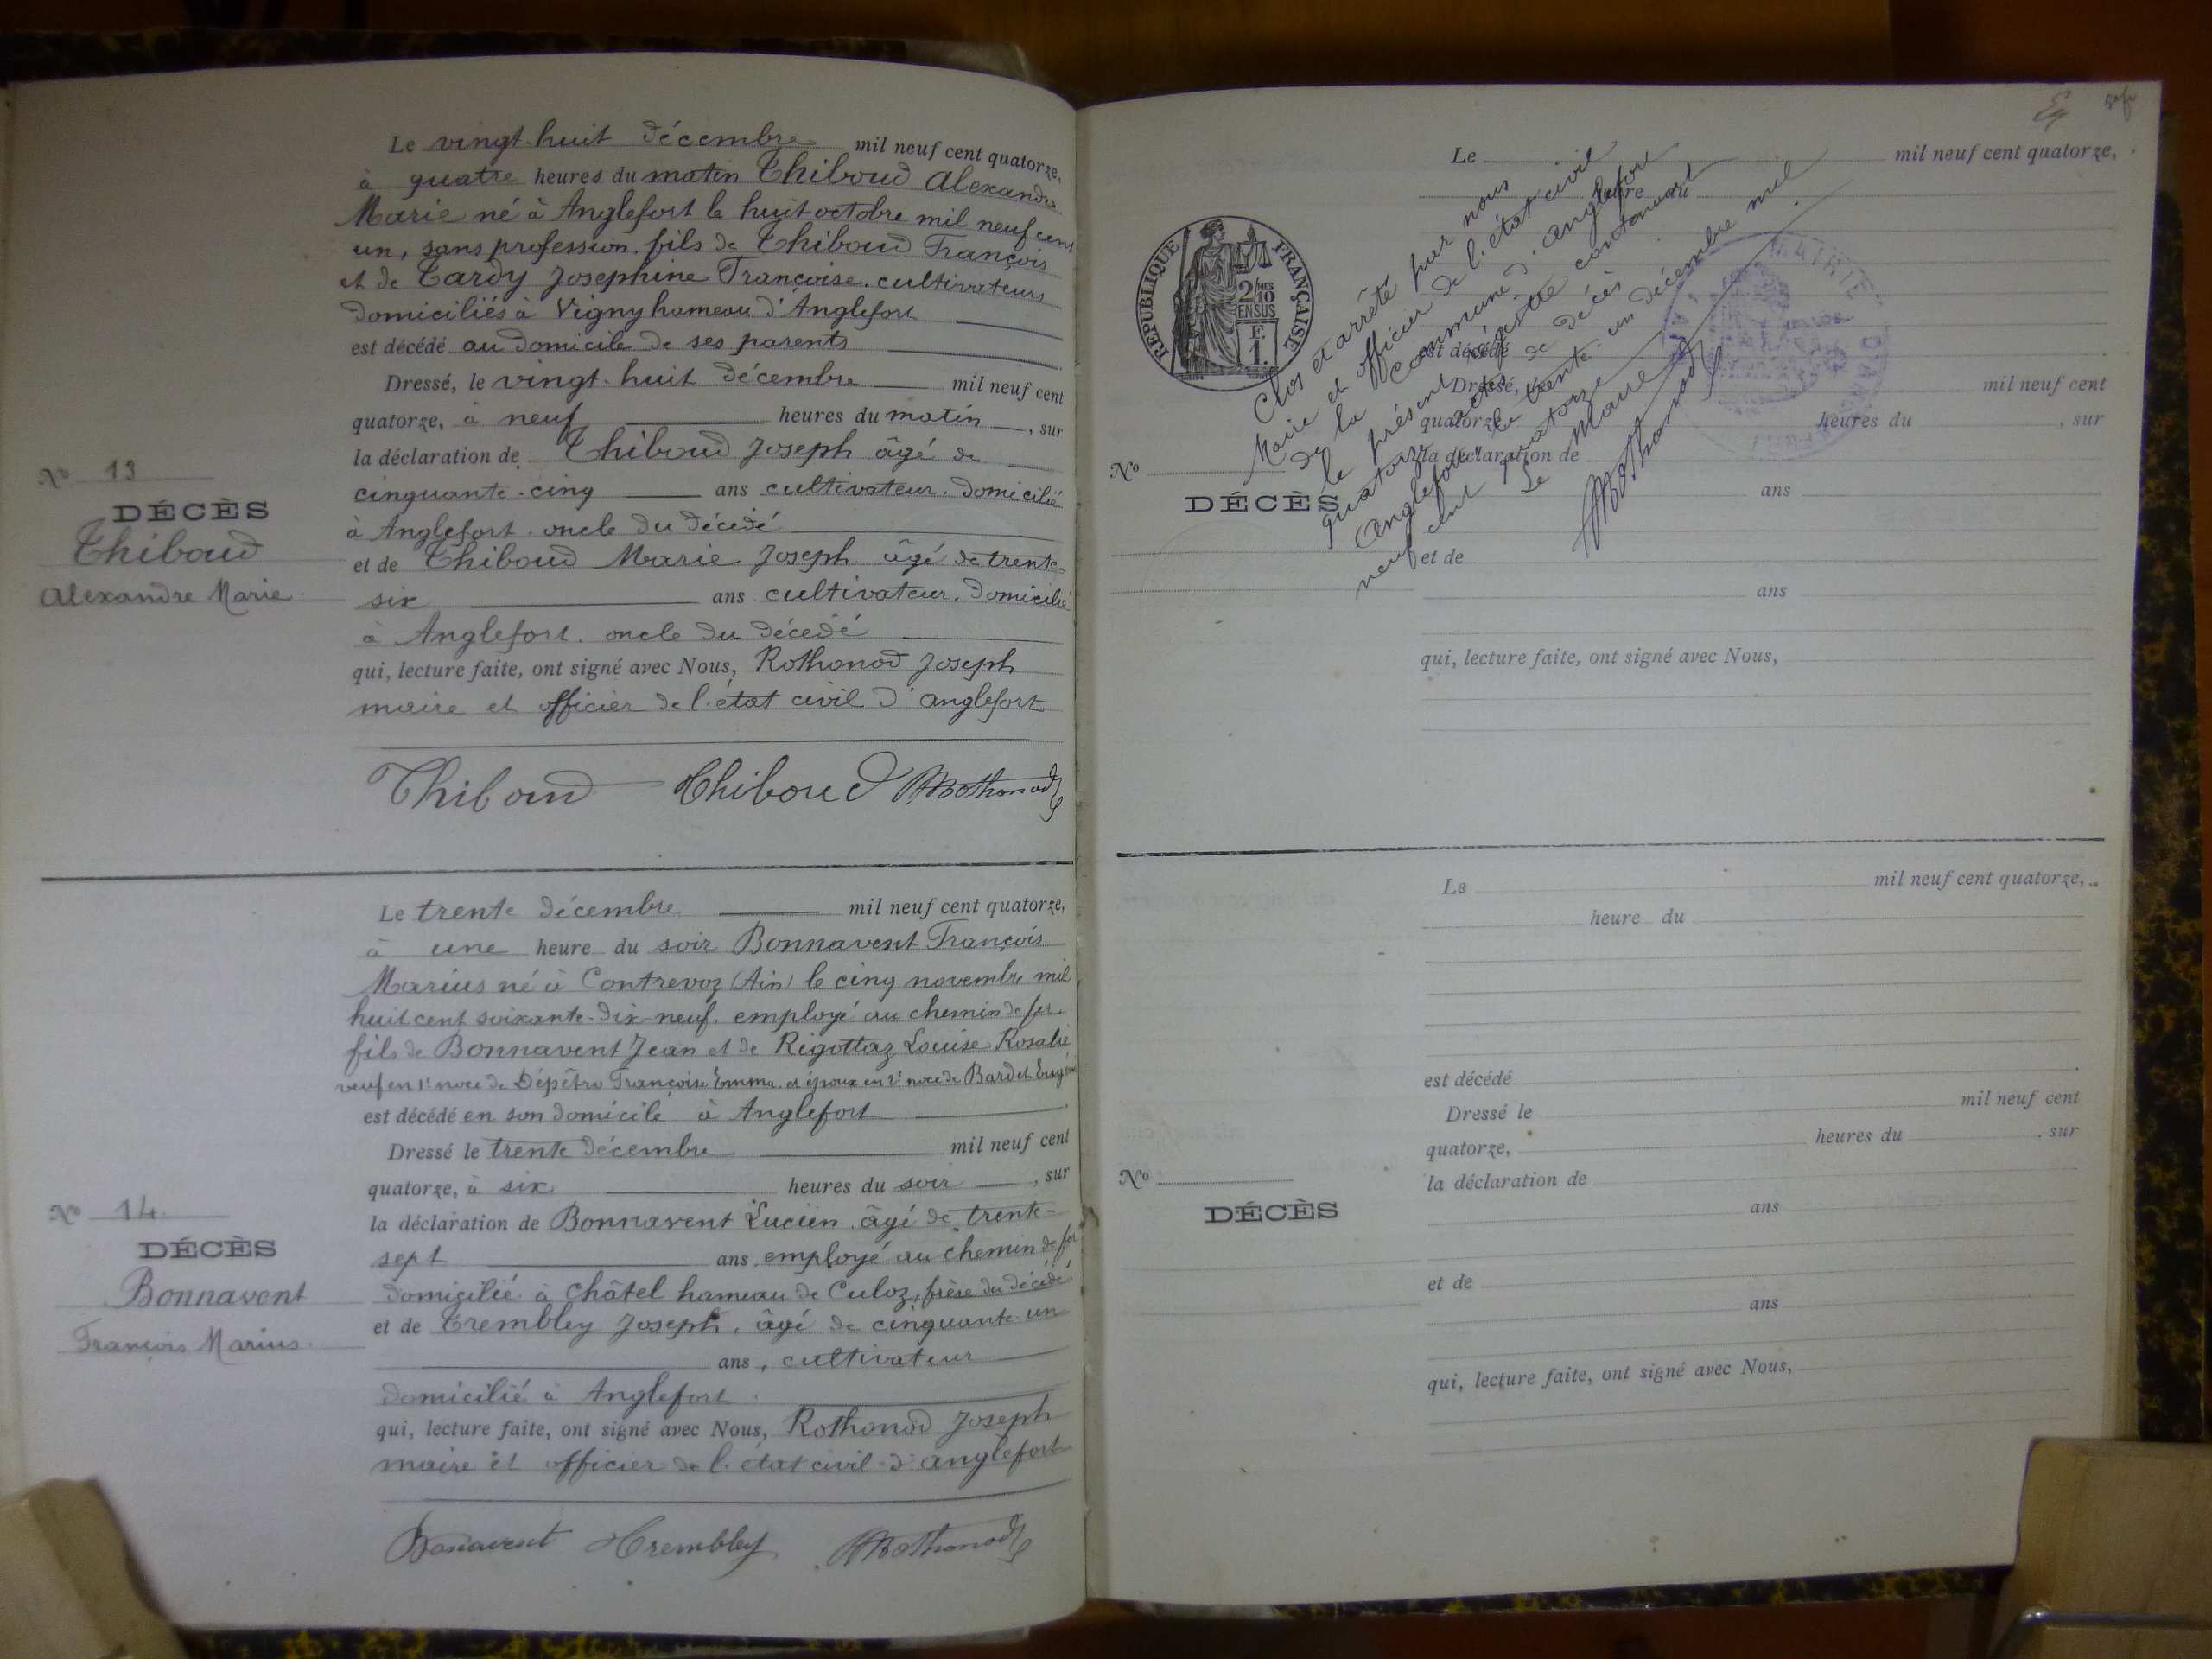 Le vingt-huit décembre mil neuf cent quatorze,
à quatre heures du matin Thiboud Alexandre
Marie né à Anglefort le huit octobre mil neuf cent
un, sans profession. fils de Thiboud François
et de Tardy Josephine Françoise. cultivateurs
domiciliés à Vigny hameau d'Anglefort
est décédé au domicile de ses parents
Dressé, le vingt-huit décembre mil neuf cent
quatorze, à neuf heures du matin, sur
la déclaration de Thiboud Joseph âgé de
cinquante-cinq ans cultivateur. domicilié
à Anglefort. oncle du décédé
et de Thiboud Marie Joseph âgé de trente-
six ans cultivateur. domicilié
à Anglefort. oncle du décedé
qui, lecture faite, ont signé avec Nous, Rothonod Joseph
maire et officier de l'état civil d'anglefort
Thiboud Thiboud Rothonod
No 13
DÉCÈS
Thiboud
Alexandre Marie.
Le trente décembre mil neuf cent quatorze,
à une heure du soir Bonnavent François
Marius né à Contrevoz (Ain) le cinq novembre mil
huit cent soixante-dix-neuf. employé au chemin de fer.
fils de Bonnavent Jean et de Rigottaz Louise Rosalie
veuf en 1e noce de Dépêtro Françoise Emma et époux en 2e noce de Bardet
est décédé en son domicile à Anglefort
Dressé le trente décembre mil neuf cent
quatorze, à six heures du soir, sur
la déclaration de Bonnavent Lucien. âgé de trente-
sept ans employé au chemin de fer
domicilié à Châtel hameau de Culoz, frère du décédé
et de Trembley Joseph, âgé de cinquante-un
ans, cultivateur
domicilié à Anglefort.
qui, lecture faite, ont signé avec Nous, Rothonod Joseph
maire et officier de l'état civil d'anglefort
Bonavent Trembley Rothonod
No 14
DÉCÈS
Bonnavent
François Marius.
Le mil neuf cent quatorze,
heure du
RÉPUBLIQUE FRANÇAISE
2/10 EN SUS
F. 1.
Clos et arrêté par nous
Maire et officier de l'état civil
de la commune d'anglefort
le présent registre contenant
quatorze actes de décès
Anglefort le trente-un décembre mil
neuf cent quatorze
Le Maire
Rothonod
MAIRIE D'ANGLEFORT
est décédé
Dressé, le mil neuf cent
quatorze, heures du , sur
la déclaration de
ans
et de
ans
qui, lecture faite, ont signé avec Nous,
No
DÉCÈS
Le mil neuf cent quatorze,
heure du
est décédé
Dressé le mil neuf cent
quatorze, heures du , sur
la déclaration de
ans
et de
ans
qui, lecture faite, ont signé avec Nous,
No
DÉCÈS